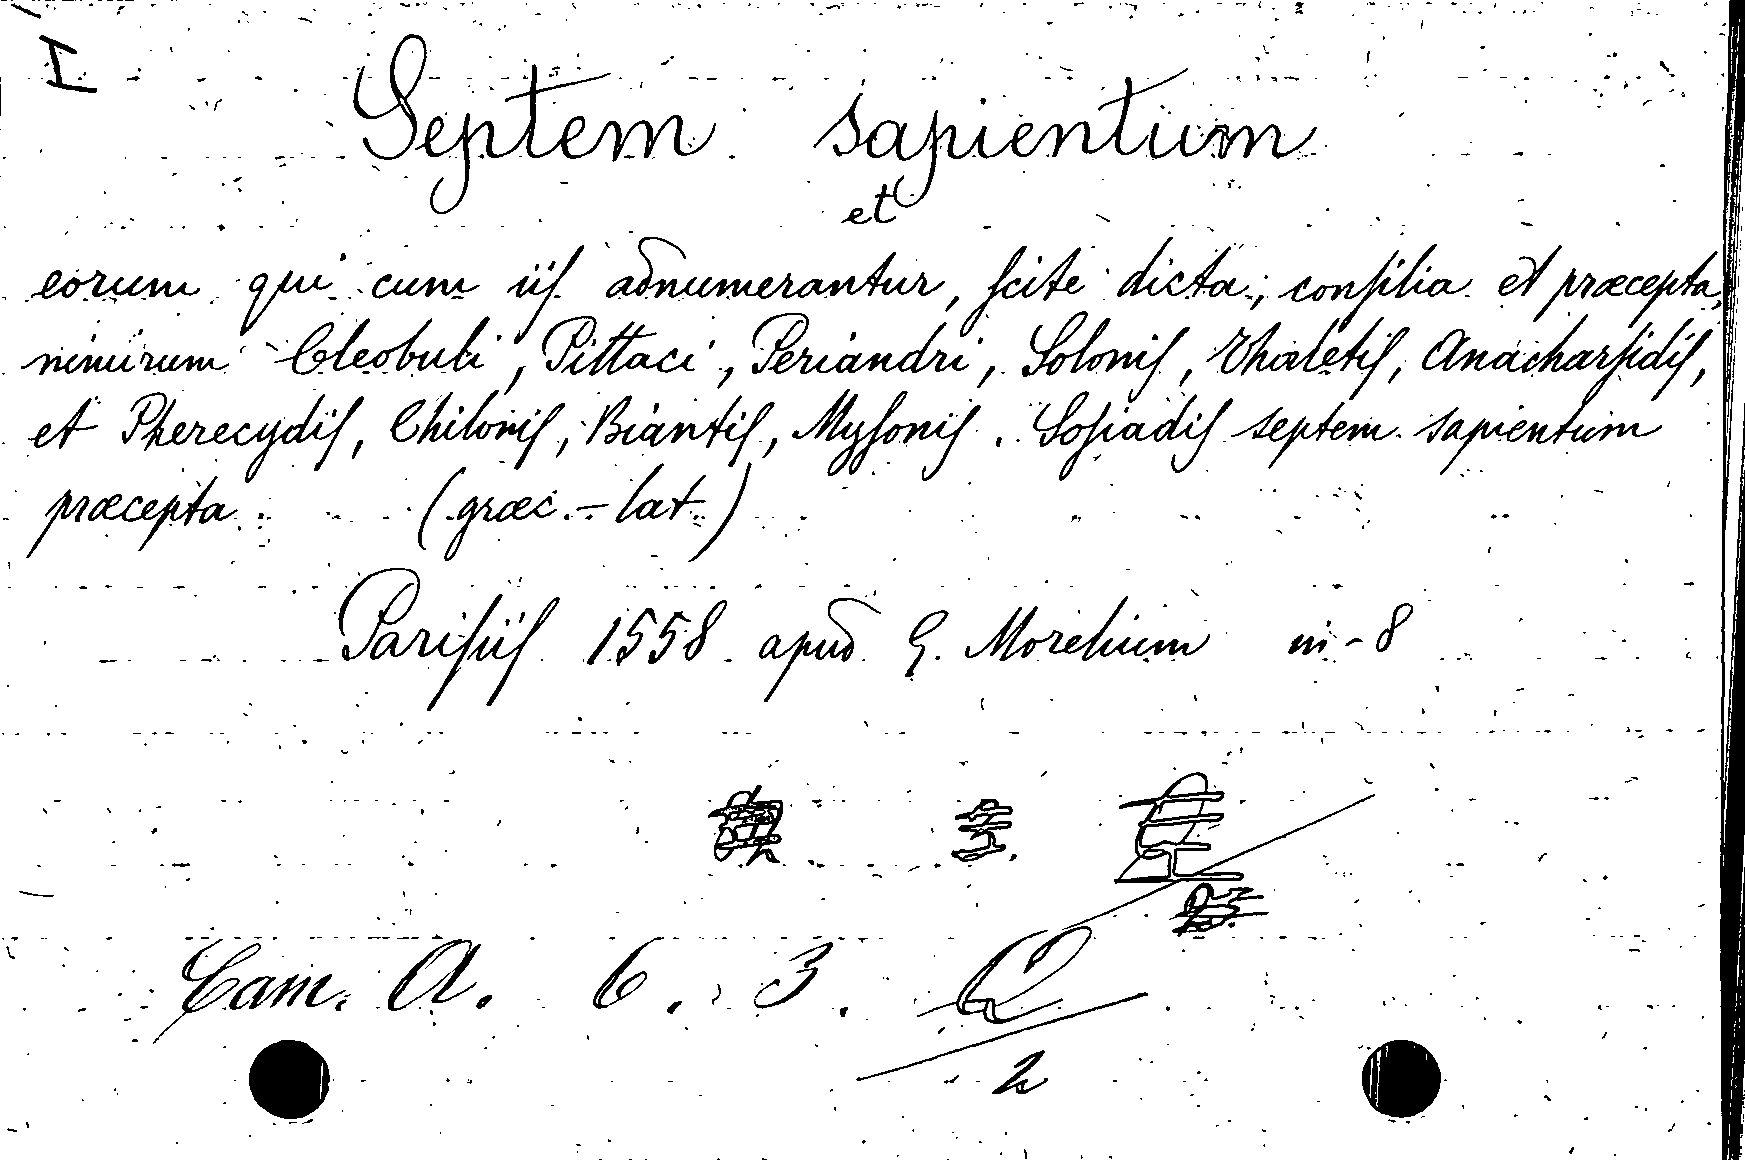 I
Septem sapientum
et
eorum qui cum iiſ adnumerantur, ſcite dicta, conſilia et præcepta,
nimirum Cleobuli, Pittaci, Periandri, Soloniſ, Thaletiſ, Anacharſidiſ,
et Pherecydiſ, Chiloniſ, Biantiſ, Myſoniſ. Soſiadiſ septem sapientum
præcepta (græc.-lat.)
Pariſiiſ 1558 apud G. Morelium in-8
Cam. A. 6. 3. Q
2